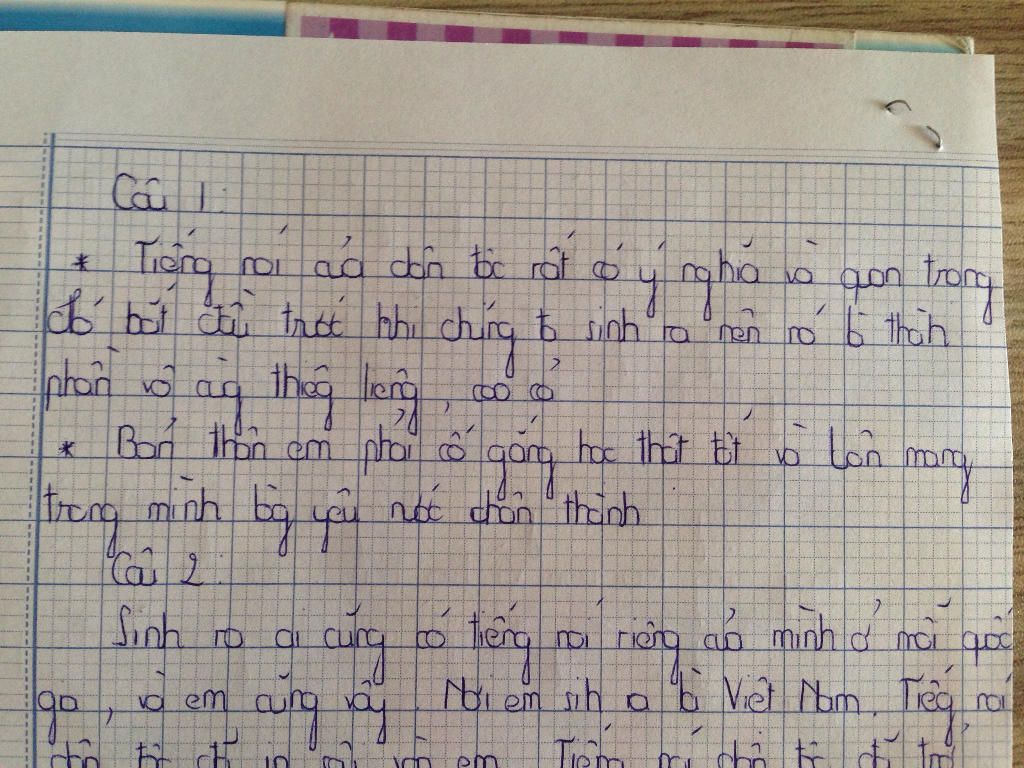 Câu 1:
* Tiếng nói của dân tộc rất có ý nghĩa và quan trọng
đó bắt đầu trước khi chúng ta sinh ra nên nó là thành
phần vô cùng thiêng liêng, cao cả
* Bản thân em phải cố gắng học thật tốt và luôn mang
trong mình lòng yêu nước chân thành
Câu 2:
Sinh ra ai cũng có tiếng nói riêng của mình ở mỗi quốc
gia, và em cũng vậy. Nơi em sinh ra là Việt Nam. Tiếng nói
dân tộc đã in sâu em. Tiếng nói dân tộc đã trở